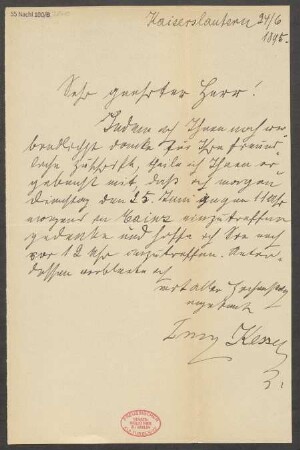 55 Nachl 100/B
Kaiserslautern 24/6
1895.
Sehr geehrter Herr!
Indem ich Ihnen noch ver-
bindlichst danke für Ihre freund-
liche Zuschrift, theile ich Ihnen er-
gebenst mit daß ich morgen
Dienstag den 25. Juni gegen 11 Uhr
morgens in Mainz einzutreffen
gedenke und hoffe ich Sie noch
vor 12 Uhr anzutreffen. Unter-
dessen verbleibe ich
mit aller Hochachtung
ergebenst